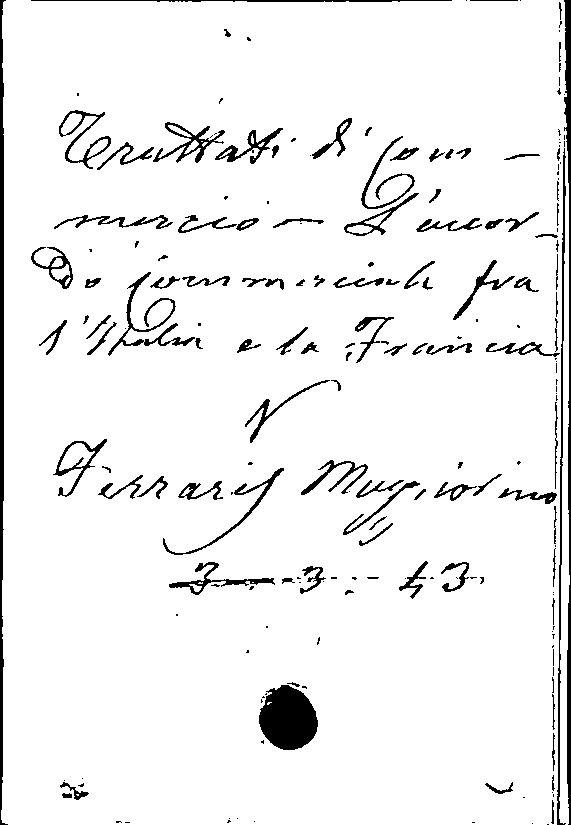 Trattati di com-
mercio - L'accor-
do commerciale fra
l'Italia e la Francia
V
Ferraris Maggiorino
3. 3. 43